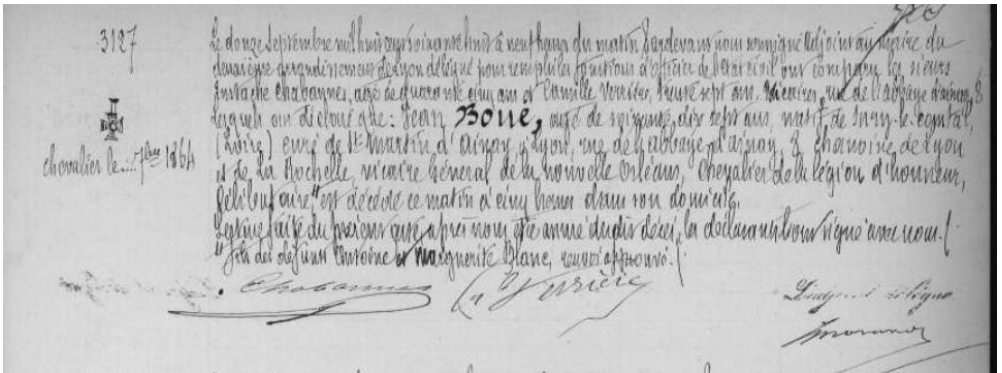 3127
Le douze Septembre mil huit cent soixante huit à neuf heures du matin Pardevant nous soussigné adjoint au maire du
deuxième arrondissement de Lyon délégué pour remplir les fonctions d'officier de l'état civil ont comparu les sieurs
Eustache Chabannes, agé de quarante cinq ans et Camille trente sept ans, Vicaires, rue de l'abbaye d'ainay, 8
lesquels ont déclaré que : Jean Boue, agé de soixante dix sept ans, natif de Sury-le-Comtal,
(Loire) curé de St Martin d'Ainay à Lyon, rue de l'abbaye d'ainay, 8 chanoine de Lyon
chevalier le .... 7bre 1864
et de La Rochelle, vicaire Général de la nouvelle Orléans, Chevalier de la légion d'honneur,
Célibataire, est décédé ce matin à cinq heures dans son domicile,
Lecture faite du présent acte après nous être assuré dudit décès, les déclarants ont signé avec nous. /
fils des défunts Antoine et Marguerite Blanc, renvoi approuvé. /
Chabannes